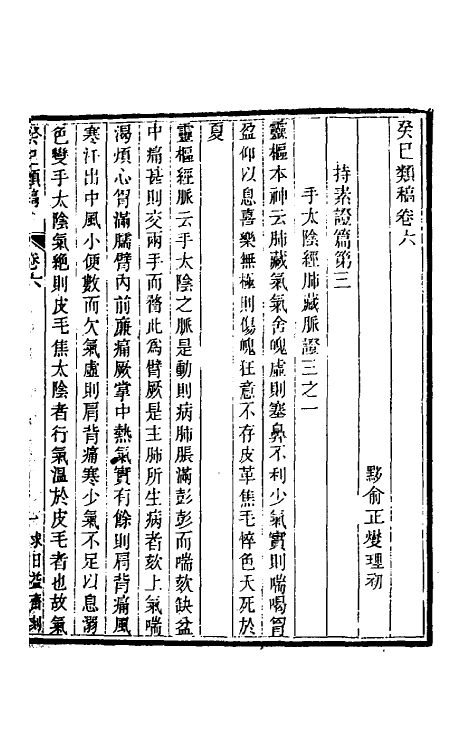 癸巳類稿卷六
黟俞正燮理初
持素證篇第三
手太陰經肺藏脈證三之一
靈樞本神云肺藏氣氣舍魄虛則塞鼻不利少氣實則喘喝胷
盈仰以息喜樂無極則傷魄狂意不存皮革焦毛悴色夭死於
夏
靈樞經脈云手太陰之脈是動則病肺脹滿彭彭而喘欬缺盆
中痛甚則交兩手而瞀此爲臂厥是主肺所生病者欬上氣喘
渴煩心胷滿臑臂內前廉痛厥掌中熱氣實有餘則肩背痛風
寒汗出中風小便數而欠氣虛則肩背痛寒少氣不足以息溺
色變手太陰氣絶則皮毛焦太陰者行氣溫於皮毛者也故氣
癸巳類稿
卷六
一
求日益齋刻